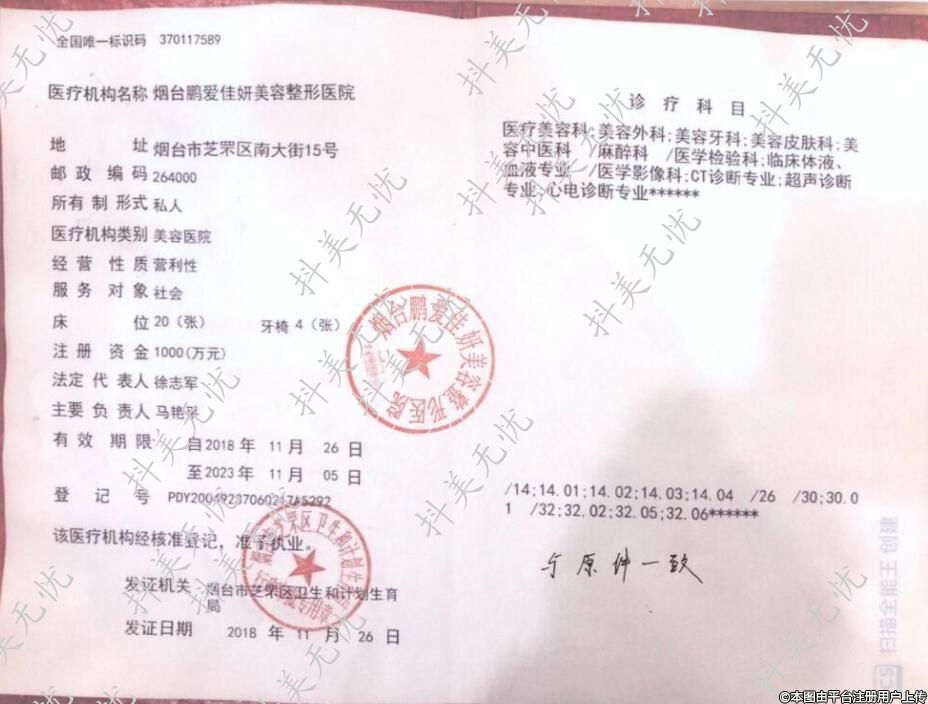 全国唯一标识码 370117589
医疗机构名称 烟台鹏爱佳妍美容整形医院
地 址 烟台市芝罘区南大街15号
邮政编码 264000
所有制形式 私人
医疗机构类别 美容医院
经营性质 营利性
服务对象 社会
床 位 20（张） 牙椅 4（张）
注册资金 1000(万元)
法定代表人 徐志军
主要负责人 马艳
有效期限 自2018 年 11 月 26 日
至2023 年 11 月 05 日
登 记 号
该医疗机构经核准登记，准予执业。
发证机关 烟台市芝罘区卫生和计划生育
局
发证日期 2018 年 11 月 26 日
诊 疗 科 目
医疗美容科;美容外科;美容牙科;美容皮肤科;美
容中医科 /麻醉科 /医学检验科;临床体液、
血液专业 /医学影像科;CT诊断专业;超声诊断
专业;心电诊断专业******
/14;14.01;14.02;14.03;14.04 /26 /30;30.0
1 /32;32.02;32.05;32.06******
与原件一致
烟台鹏爱佳妍美容整形医院
抖美无忧
CS 扫描全能王 创建
©本图由平台注册用户上传